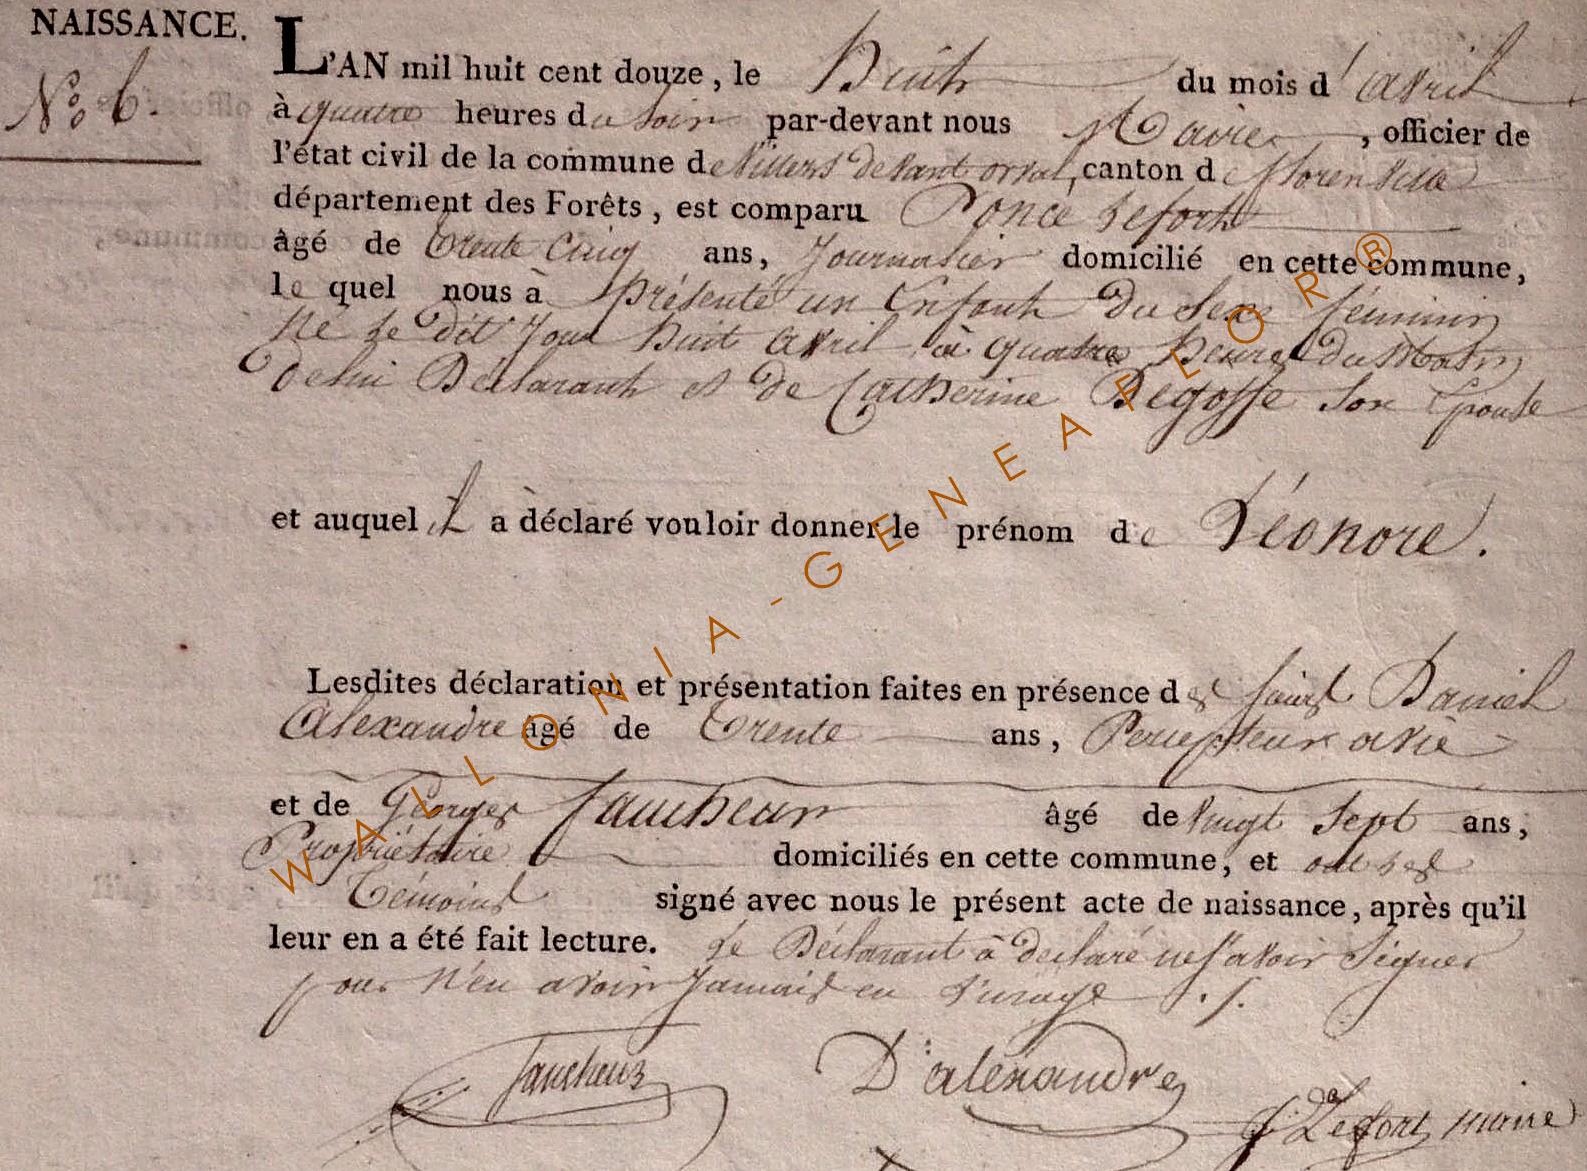 NAISSANCE.
N° 6.
L'AN mil huit cent douze, le huit du mois d'avril
à quatre heures du soir par-devant nous Maire, officier de
l'état civil de la commune de Villers devant orval, canton de florenville
département des Forêts, est comparu Ponce Lefort
âgé de trente cinq ans, Journalier domicilié en cette commune,
le quel nous à présenté un Enfant du sexe féminin
né le dit Jour huit avril à quatre heures du Matin
de lui Déclarant et de Catherine Degoffe son Epouse
et auquel il a déclaré vouloir donner le prénom de Léonore.
Lesdites déclaration et présentation faites en présence des Daniel
Alexandre âgé de trente ans, Percepteur a vie
et de Georges faucheux âgé de vingt sept ans,
Propriétaire domiciliés en cette commune, et ont les
témoins signé avec nous le présent acte de naissance, après qu'il
leur en a été fait lecture. Le Déclarant à déclaré ne savoir signer
pour n'en avoir Jamais eu l'usage ./.
faucheux D: alexandre
Lefort maire
WALLONIA-GENEAFLOR®